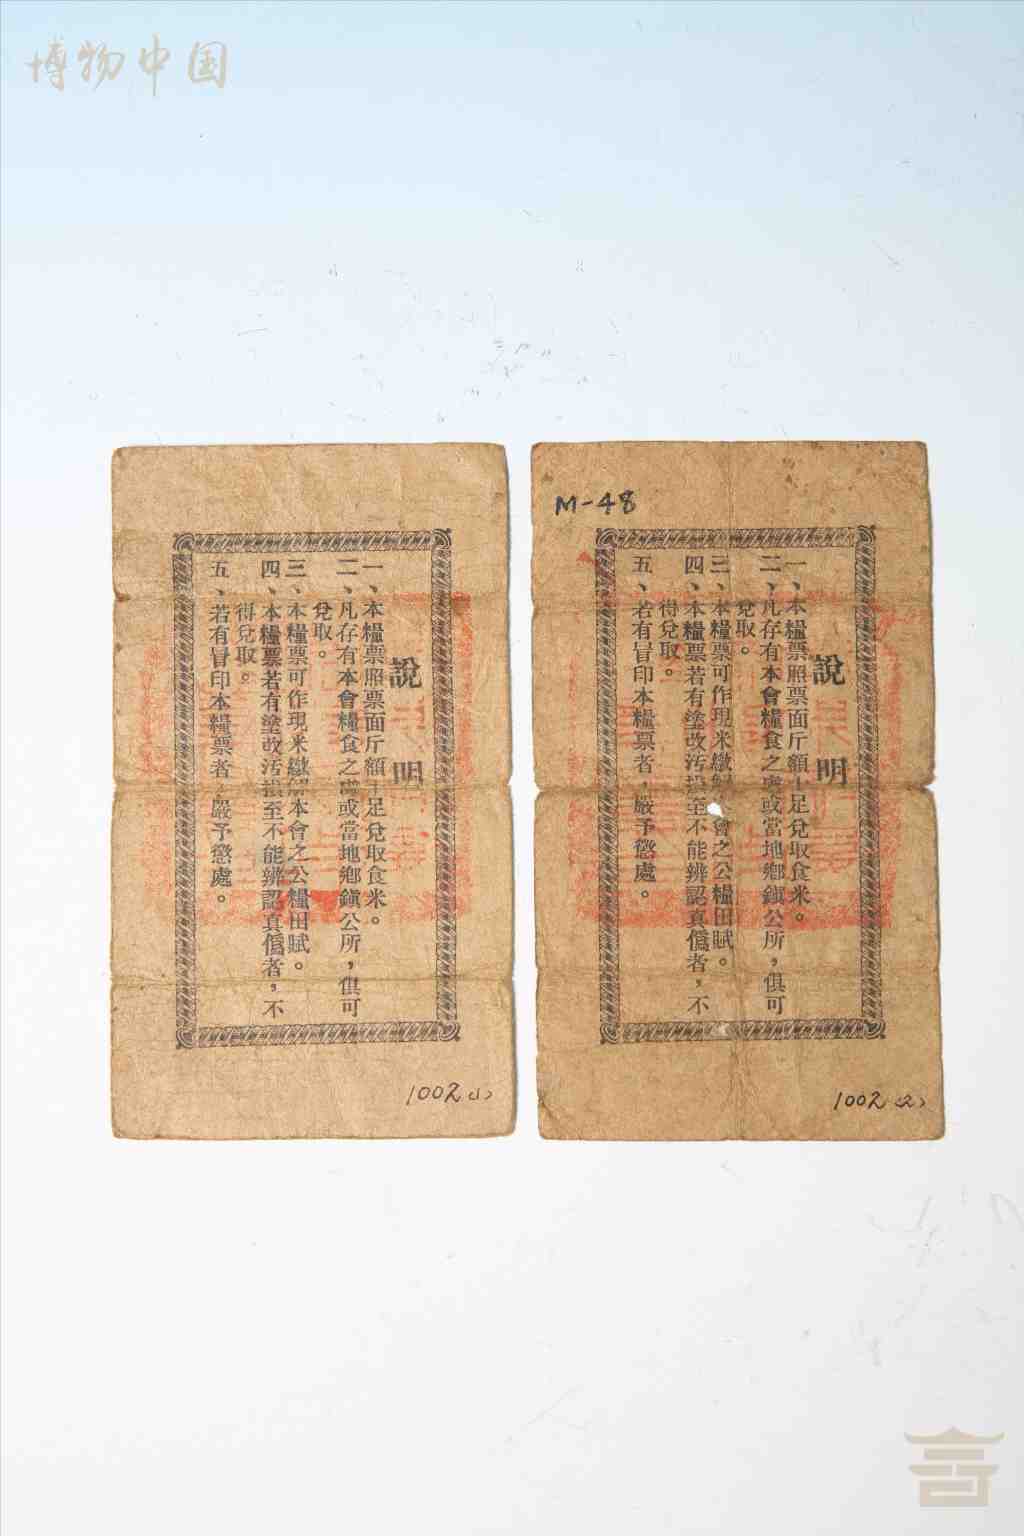 博物中国
說明
一、本糧票照票面斤額十足兌取食米。
二、凡存有本會糧食之處或當地鄉鎮公所，俱可
兌取。
三、本糧票可作現米繳解本會之公糧田賦。
四、本糧票若有塗改汚損至不能辨認真僞者，不
得兌取。
五、若有冒印本糧票者，嚴予懲處。
1002(1)
M-48
說明
一、本糧票照票面斤額十足兌取食米。
二、凡存有本會糧食之處或當地鄉鎮公所，俱可
兌取。
三、本糧票可作現米繳解本會之公糧田賦。
四、本糧票若有塗改汚損至不能辨認真僞者，不
得兌取。
五、若有冒印本糧票者，嚴予懲處。
1002(2)